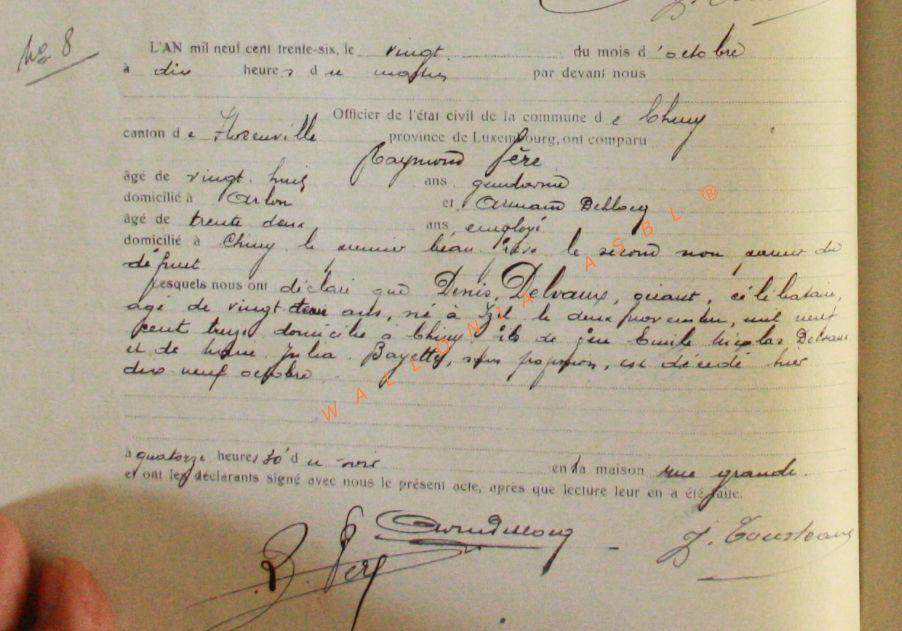 No 8
L'AN mil neuf cent trente-six, le vingt du mois d'octobre
à dix heures du matin par devant nous
Officier de l'état civil de la commune de Chiny
canton de Florenville province de Luxembourg, ont comparu
Raymond Père
âgé de vingt-huit ans gendarme
domicilié à Arlon et Armand
âgé de trente deux ans, employé
domicilié à Chiny le premier beau-frère le second non parent du
défunt
Lesquels nous ont déclaré que Denis, Delvaux, célibataire,
âgé de vingt-trois ans, né à Izel le deux novembre, mil neuf
cent treize domicilié à Chiny fils de feu Emile Nicolas Delvaux
et de Marie Julia Bayette, sans profession, est décédé hier
dix neuf octobre
à quatorze heures 30' du soir en la maison rue grande.
et ont les déclarants signé avec nous le présent acte, après que lecture leur en a été faite.
R. Père
WALLONIA ASBL ®